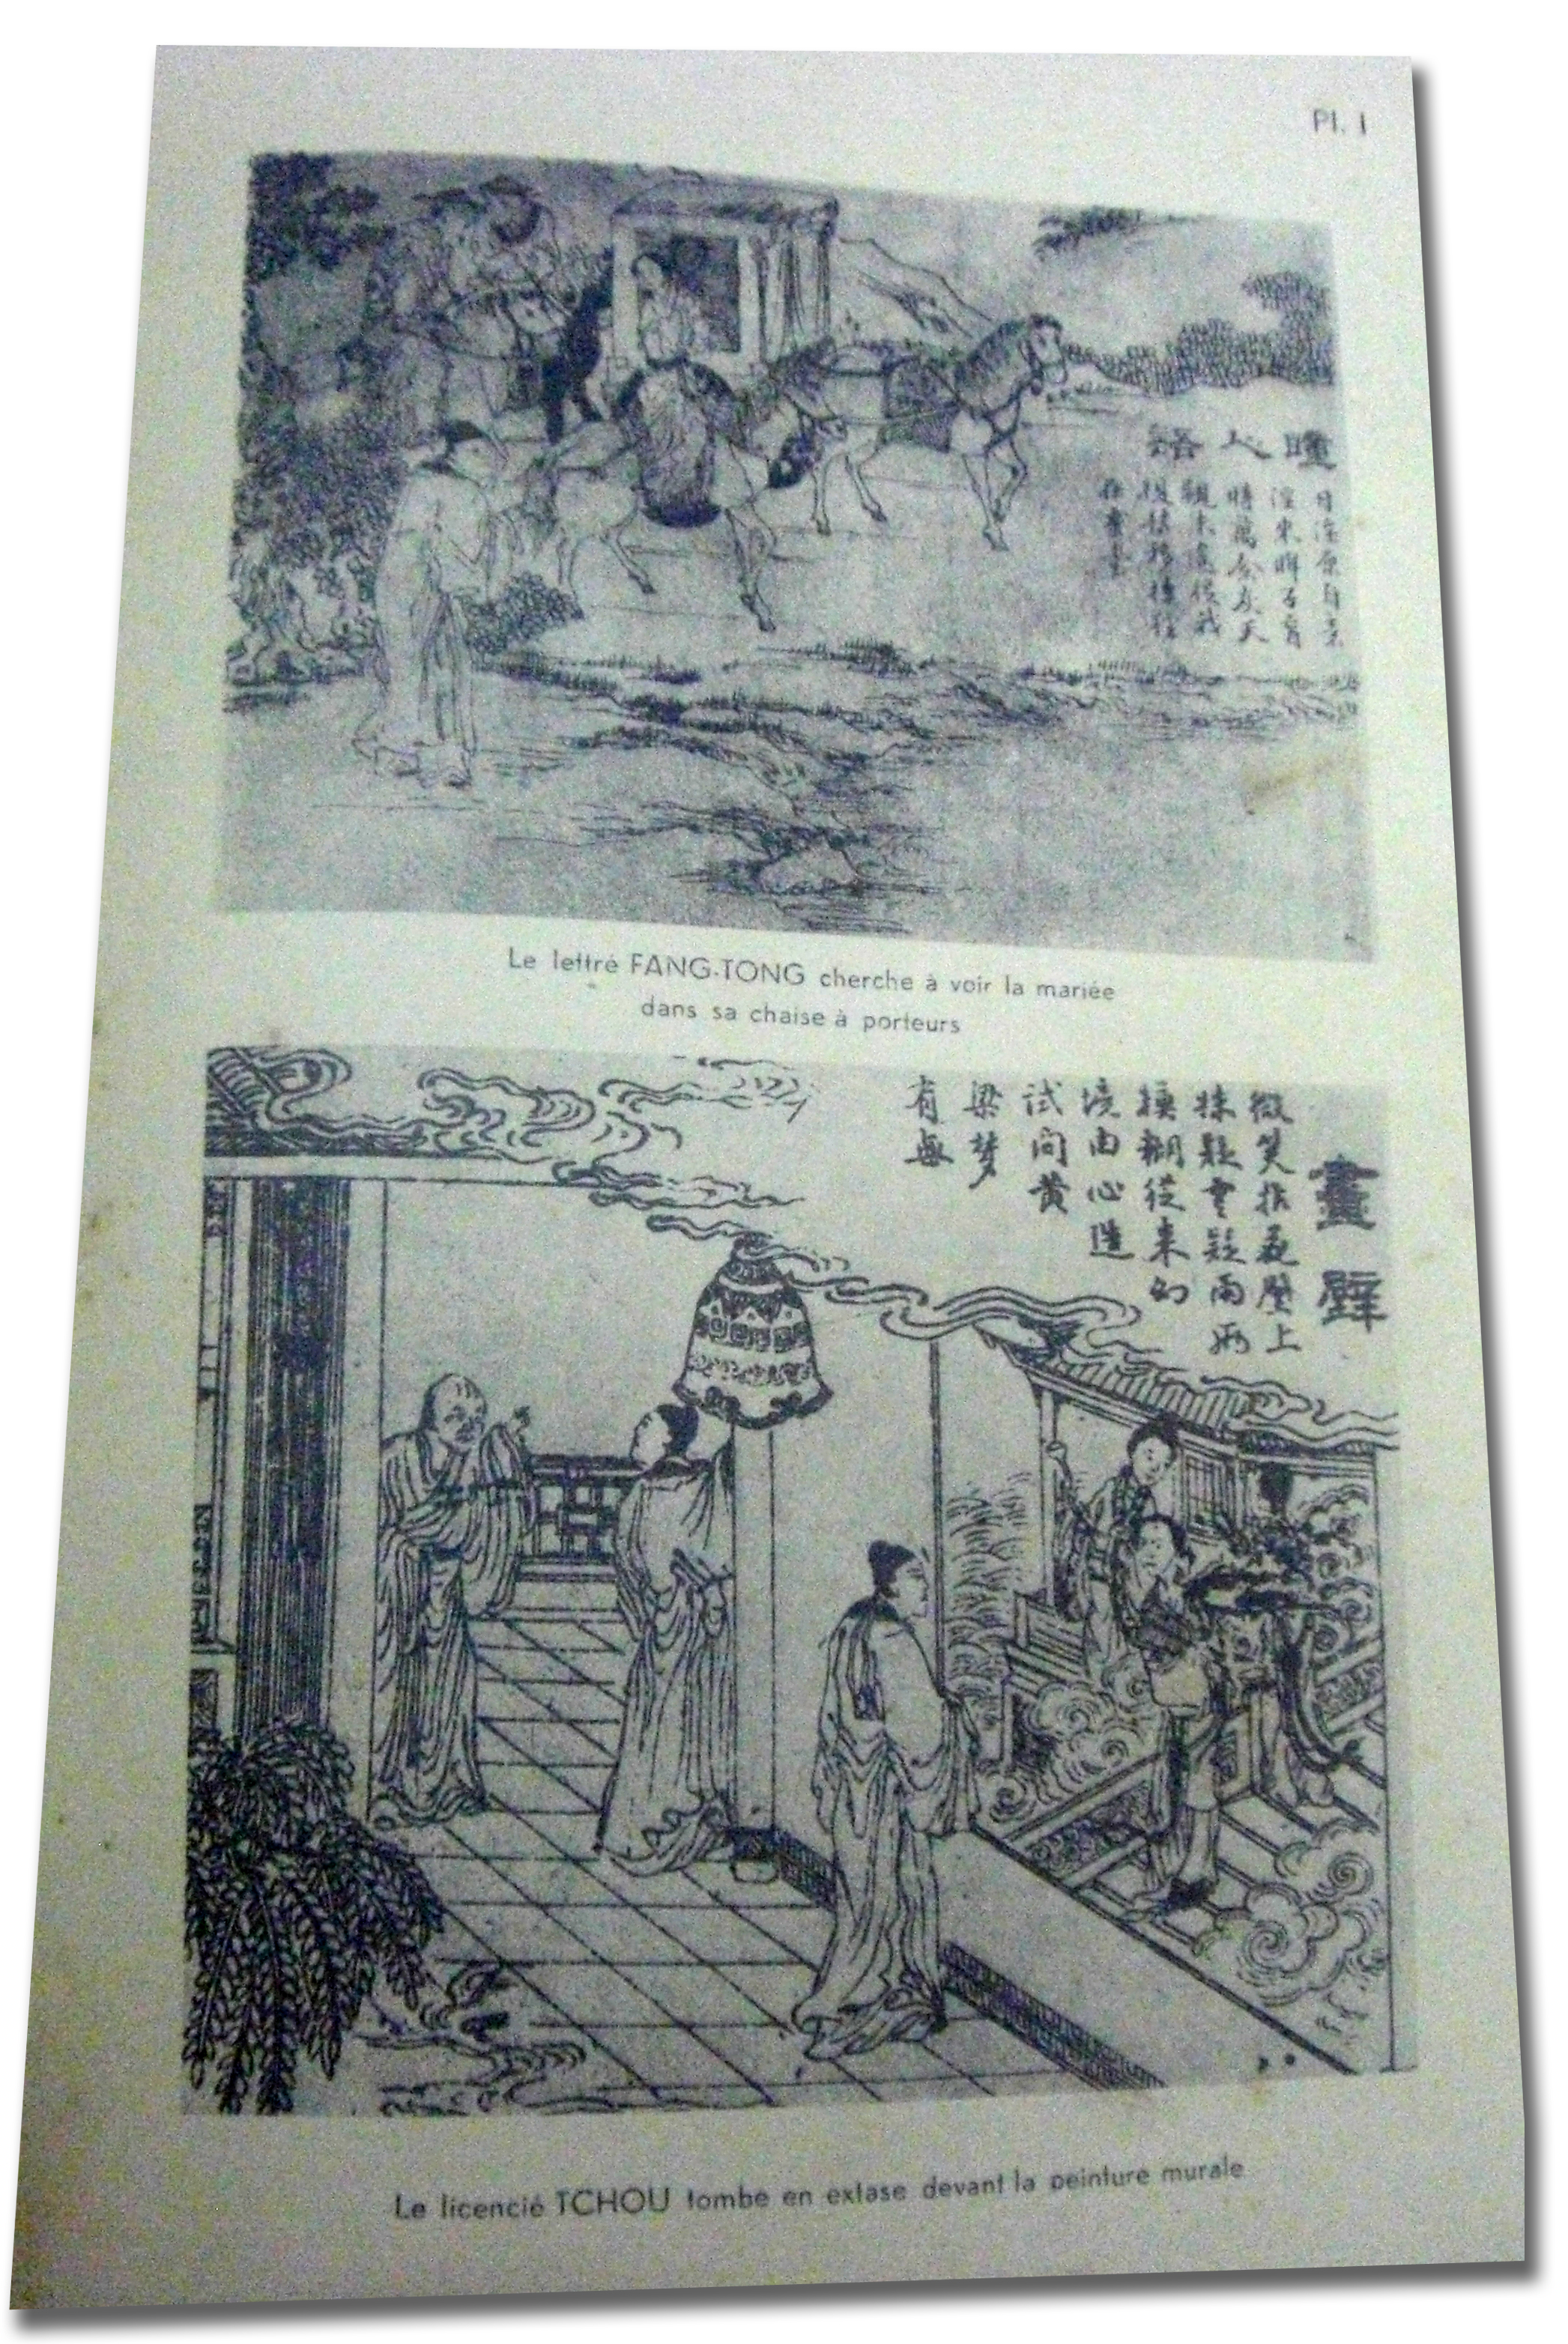 Pl. I
瞳人語
Le lettré FANG-TONG cherche à voir la mariée
dans sa chaise à porteurs
畫壁
微笑拈花壁上
姝疑雲疑雨兩
模糊從來幻
境由心造
試問黃
梁梦
有無
Le licencié TCHOU tombe en extase devant la peinture murale